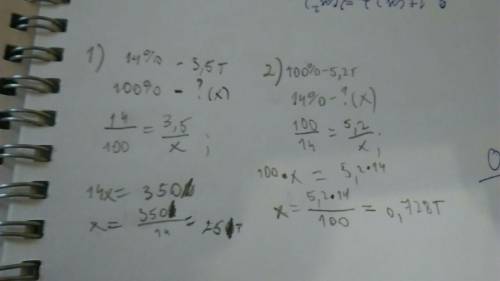 1) 14% - 3,5т
100% - ? (x)
14/100 = 3,5/x ;
14x = 350
x = 350/14 = 25т
2) 100% - 5,2т
14% - ? (x)
100/14 = 5,2/x ;
100·x = 5,2·14
x = 5,2·14/100 = 0,728т